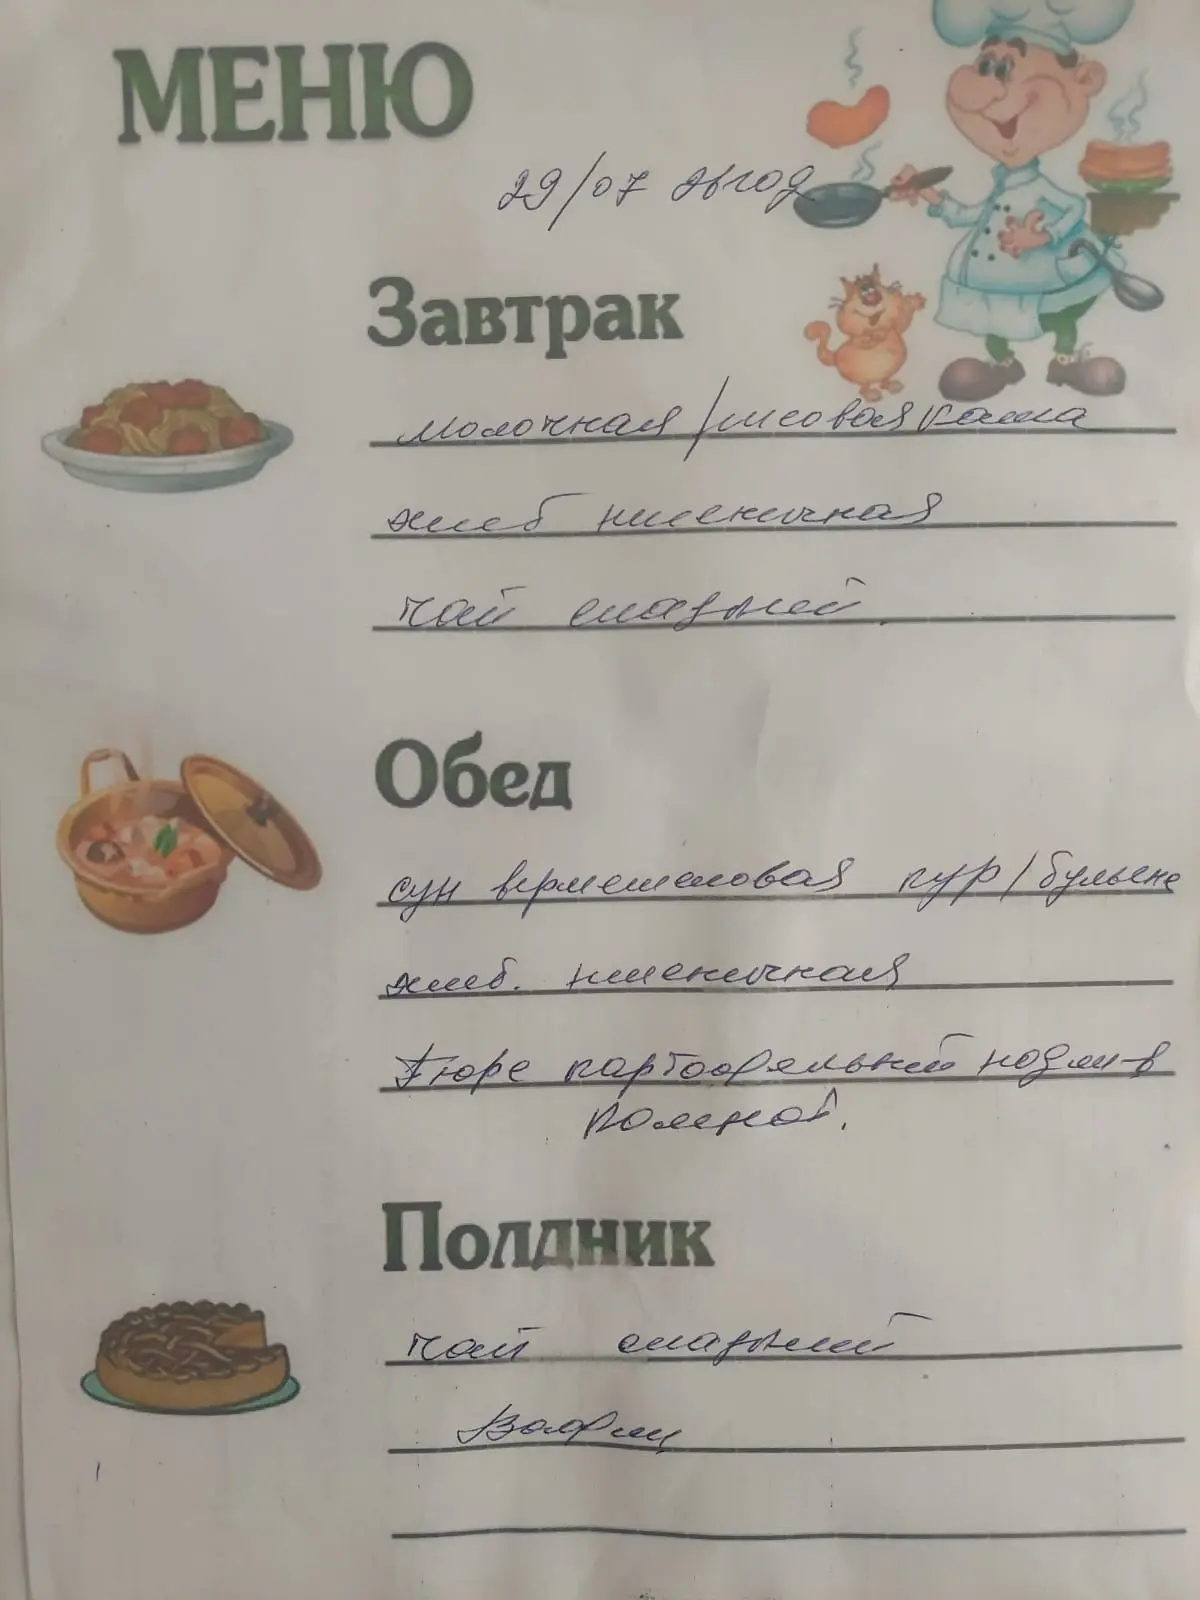 МЕНЮ
29/07
Завтрак
молочная рисовая каша
хлеб пшеничная
чай сладкий
Обед
суп вермешеловая кур/бульене
хлеб. пшеничная
Пюре картофельный
Полдник
чай сладкий
Вафли